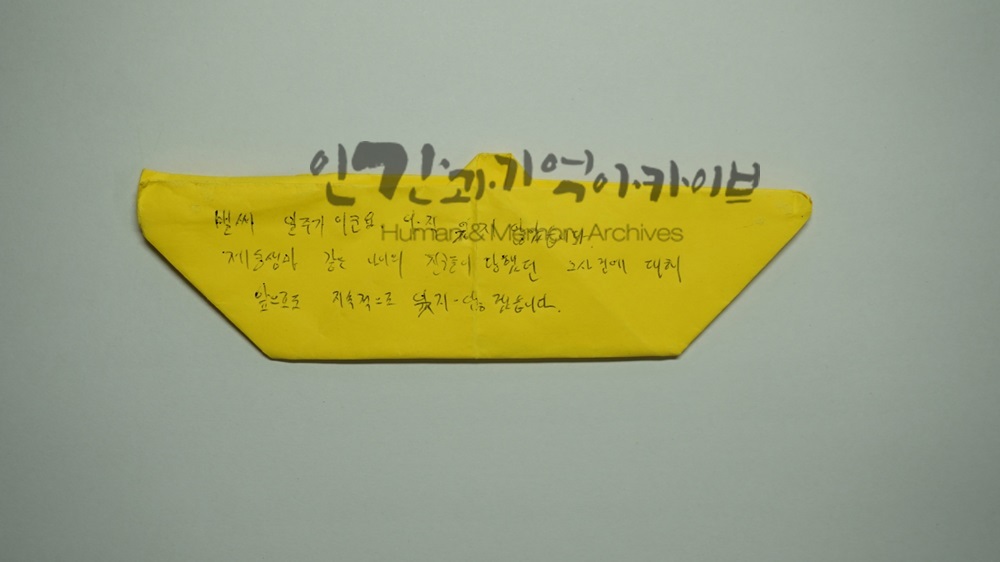 인간과기억아카이브
Human & Memory Archives
벌써 일주기 이군요 아직 잊지 않았습니다.
제동생과 같은 나이의 친구들이 당했던 그사건에 대해
앞으로도 지속적으로 잊지